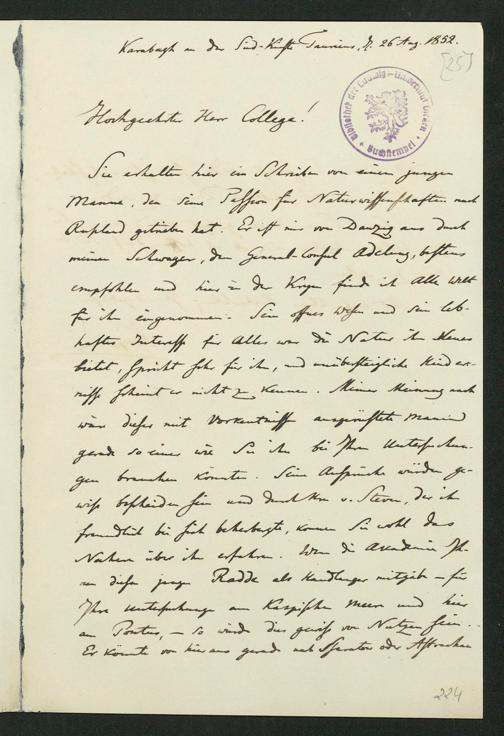 Karabagh an der Süd-Küste Tauriens, d. 26 Aug. 1852.
[25]
Bibliothek der Ludwig-Universität Giessen
Buchstempel
Hochgeehrter Herr College!
Sie erhalten hier ein Schreiben von einem jungen
Manne, den seine Passion für Naturwissenschaften nach
Rußland getrieben hat. Er ist mir von Danzig aus durch
meinen Schwager, den General-Consul Adelung, bestens
empfohlen und hier in der Krym finde ich Alle Welt
für ihn eingenommen. Sein offnes Wesen und sein leb-
haftes Interesse für Alles was die Natur ihm Neues
bietet, spricht sehr für ihn, und unübersteigliche Hinder-
nisse scheint er nicht zu kennen. Meiner Meinung nach
wäre dieser mit Vorkentniss ausgerüstete Mann
gerade so einer wie Sie ihn bei Ihren Untersuchun-
gen brauchen könnten. Seine Ansprüche würden ge-
wiß bescheiden sein und durch Hrn v. Steven, der ihn
freundlich bei sich beherbergte, können Sie wohl das
Nähere über ihn erfahren. Wenn die Akademie Ih-
nen diesen jungen Radde als Handlanger mitgäbe – für
Ihre Untersuchungen am Kaspischen Meere und hier
am Pontus, – so würde dies gewiß von Nutzen sein.
Er könnte von hier aus gerade nach Saratow oder Astrachan
224